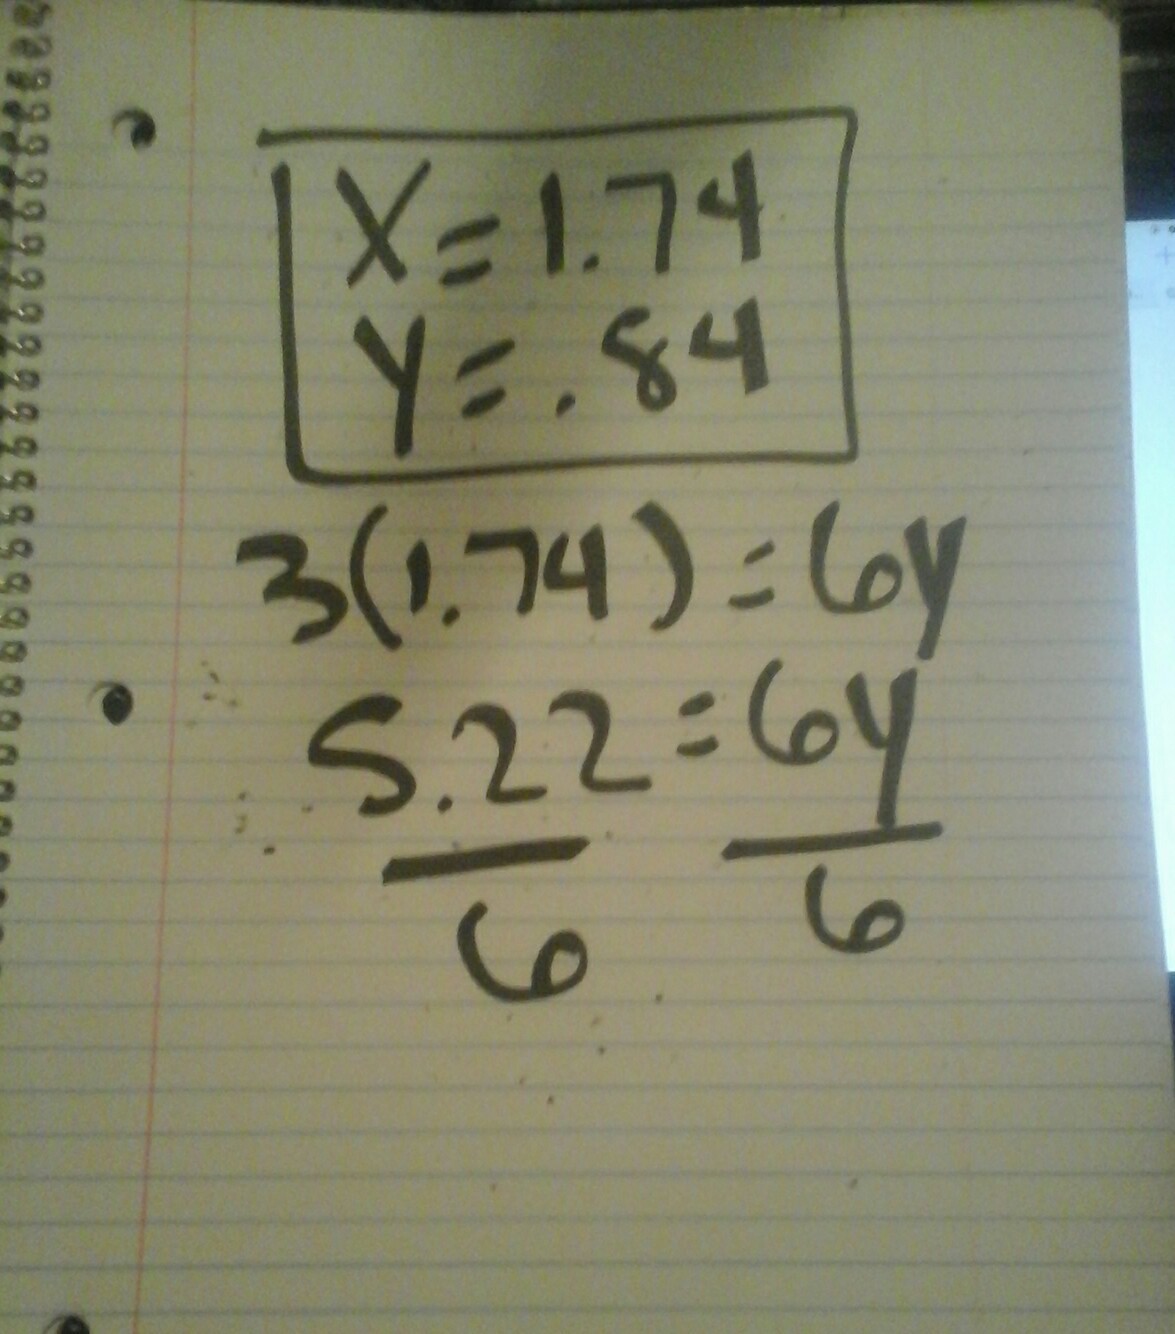 X=1.74
Y=.84
3(1.74)=6y
5.22=6y
6 6